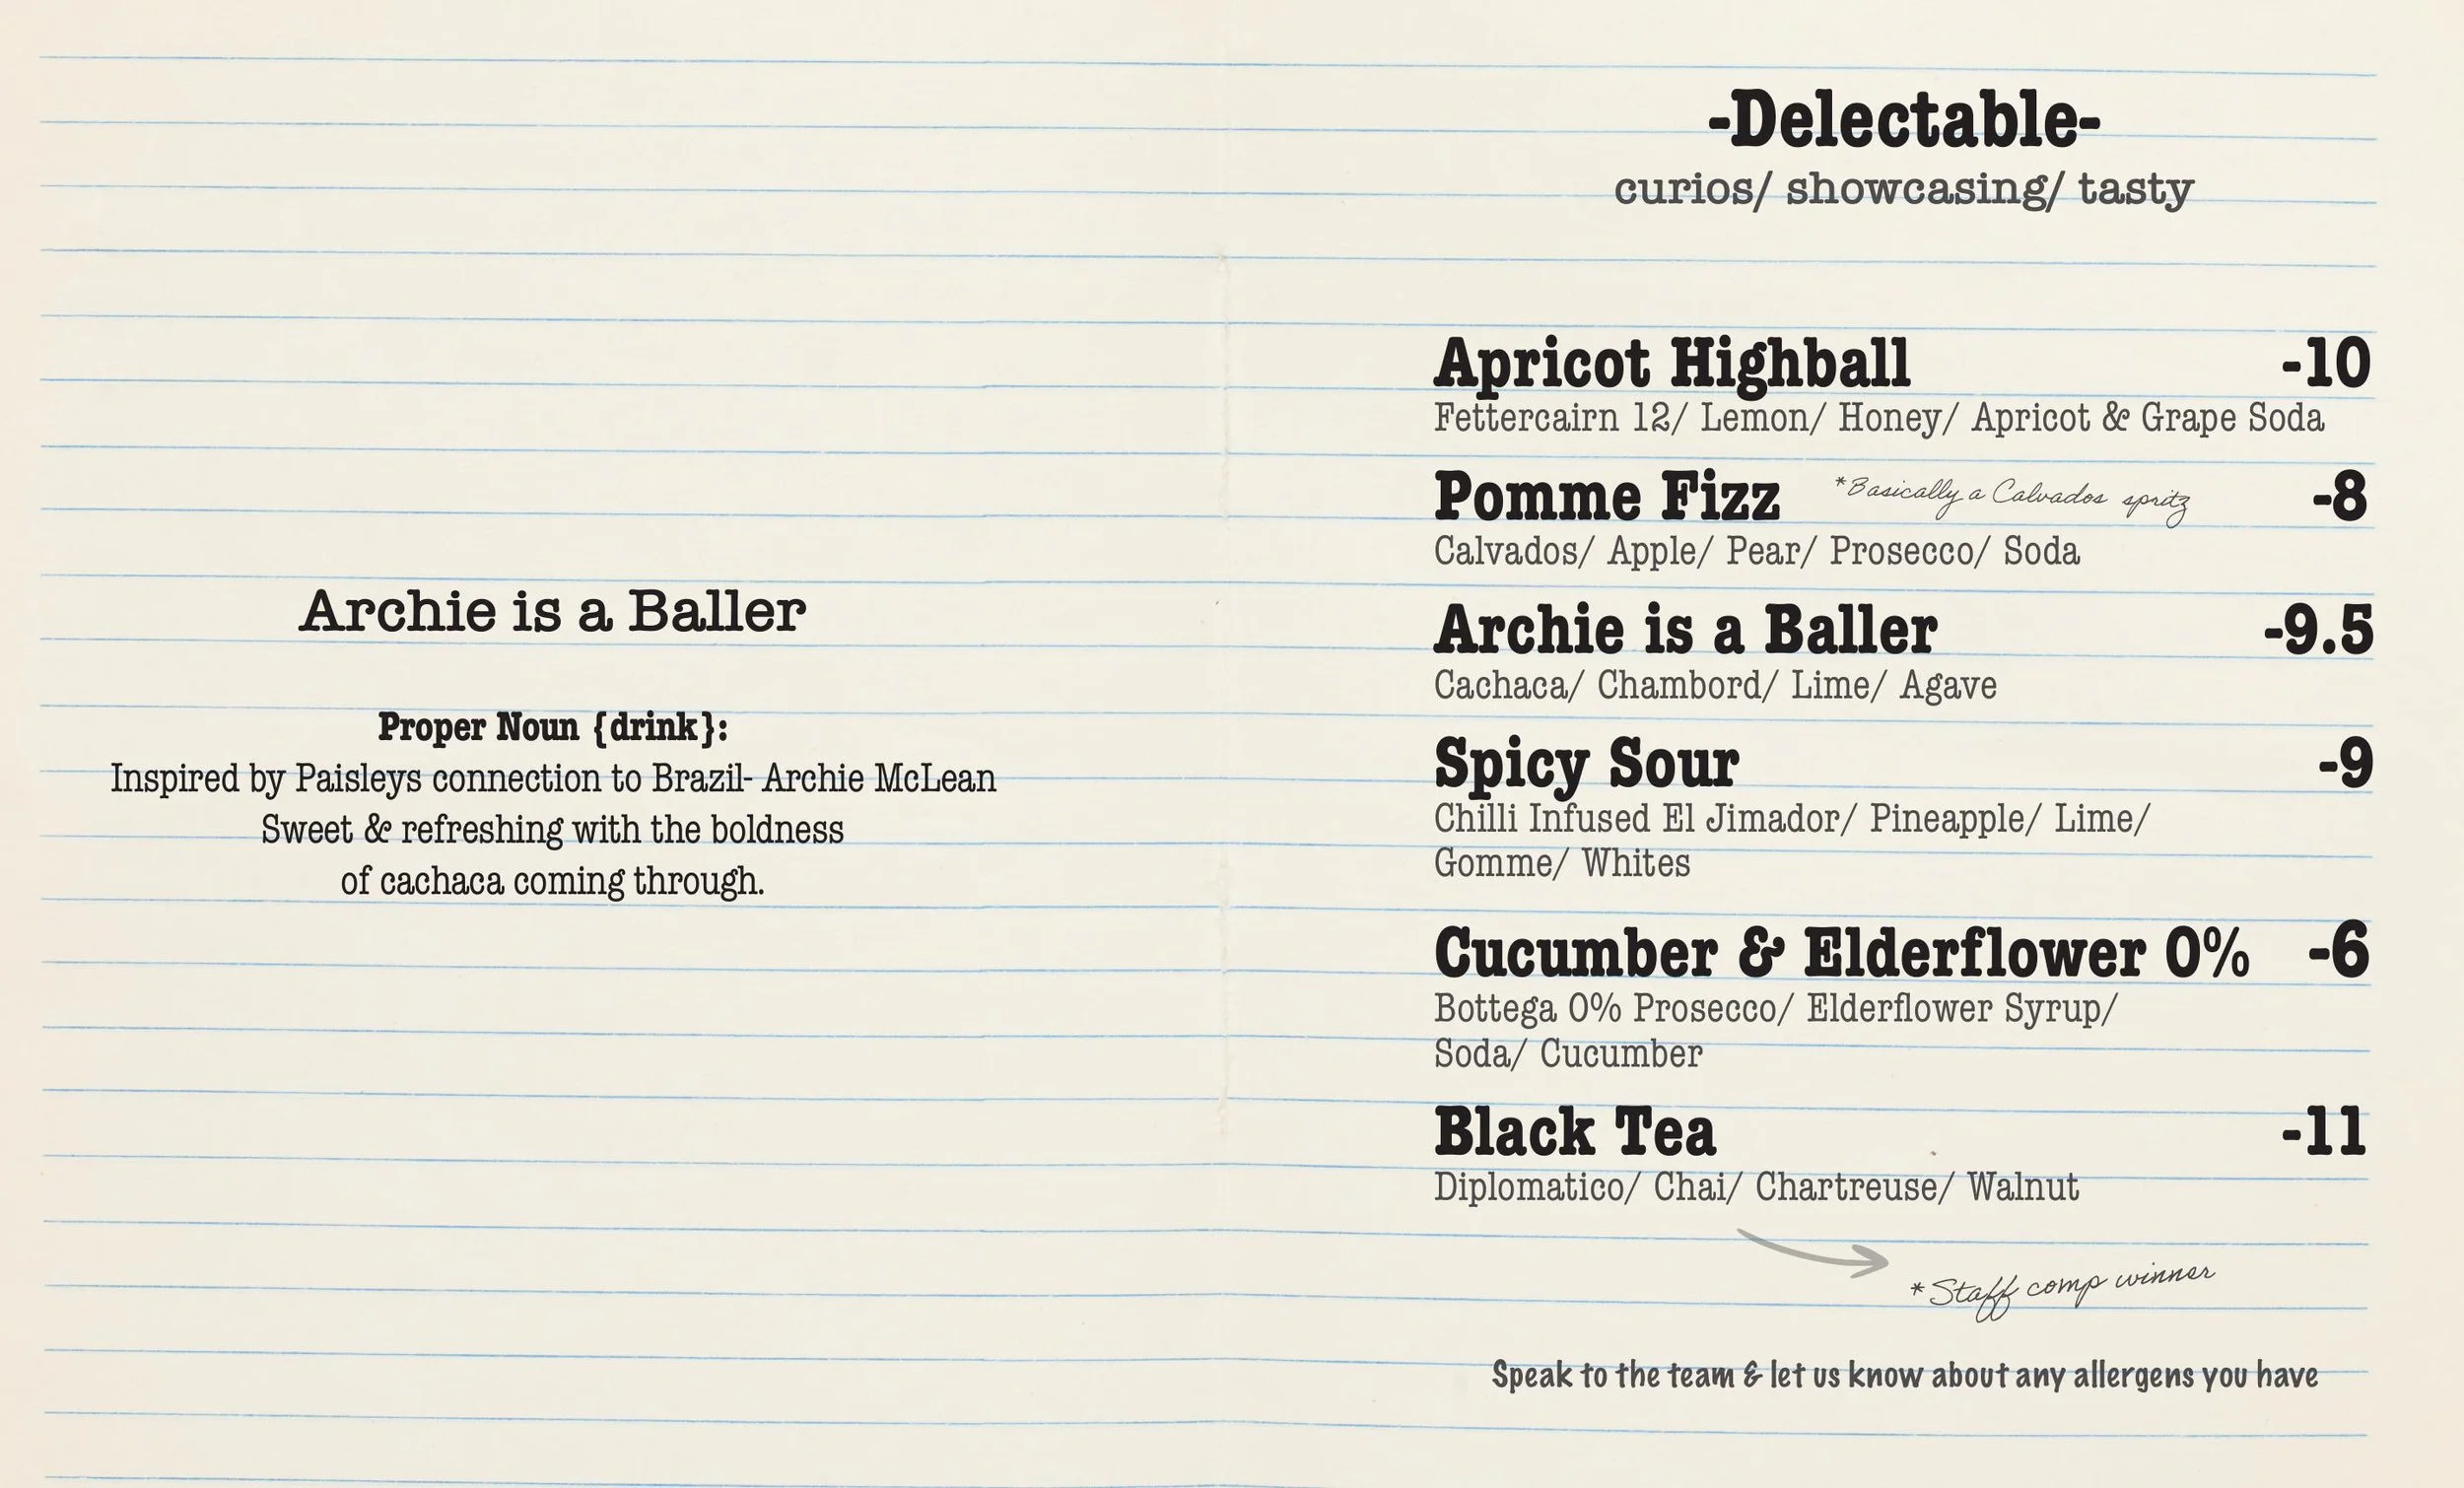 Archie is a Baller
Proper Noun {drink}:
Inspired by Paisleys connection to Brazil- Archie McLean
Sweet & refreshing with the boldness
of cachaca coming through.
-Delectable-
curios/ showcasing/ tasty
Apricot Highball -10
Fettercairn 12/ Lemon/ Honey/ Apricot & Grape Soda
Pomme Fizz *Basically a Calvados spritz -8
Calvados/ Apple/ Pear/ Prosecco/ Soda
Archie is a Baller -9.5
Cachaca/ Chambord/ Lime/ Agave
Spicy Sour -9
Chilli Infused El Jimador/ Pineapple/ Lime/
Gomme/ Whites
Cucumber & Elderflower 0% -6
Bottega 0% Prosecco/ Elderflower Syrup/
Soda/ Cucumber
Black Tea -11
Diplomatico/ Chai/ Chartreuse/ Walnut
*Staff comp winner
Speak to the team & let us know about any allergens you have